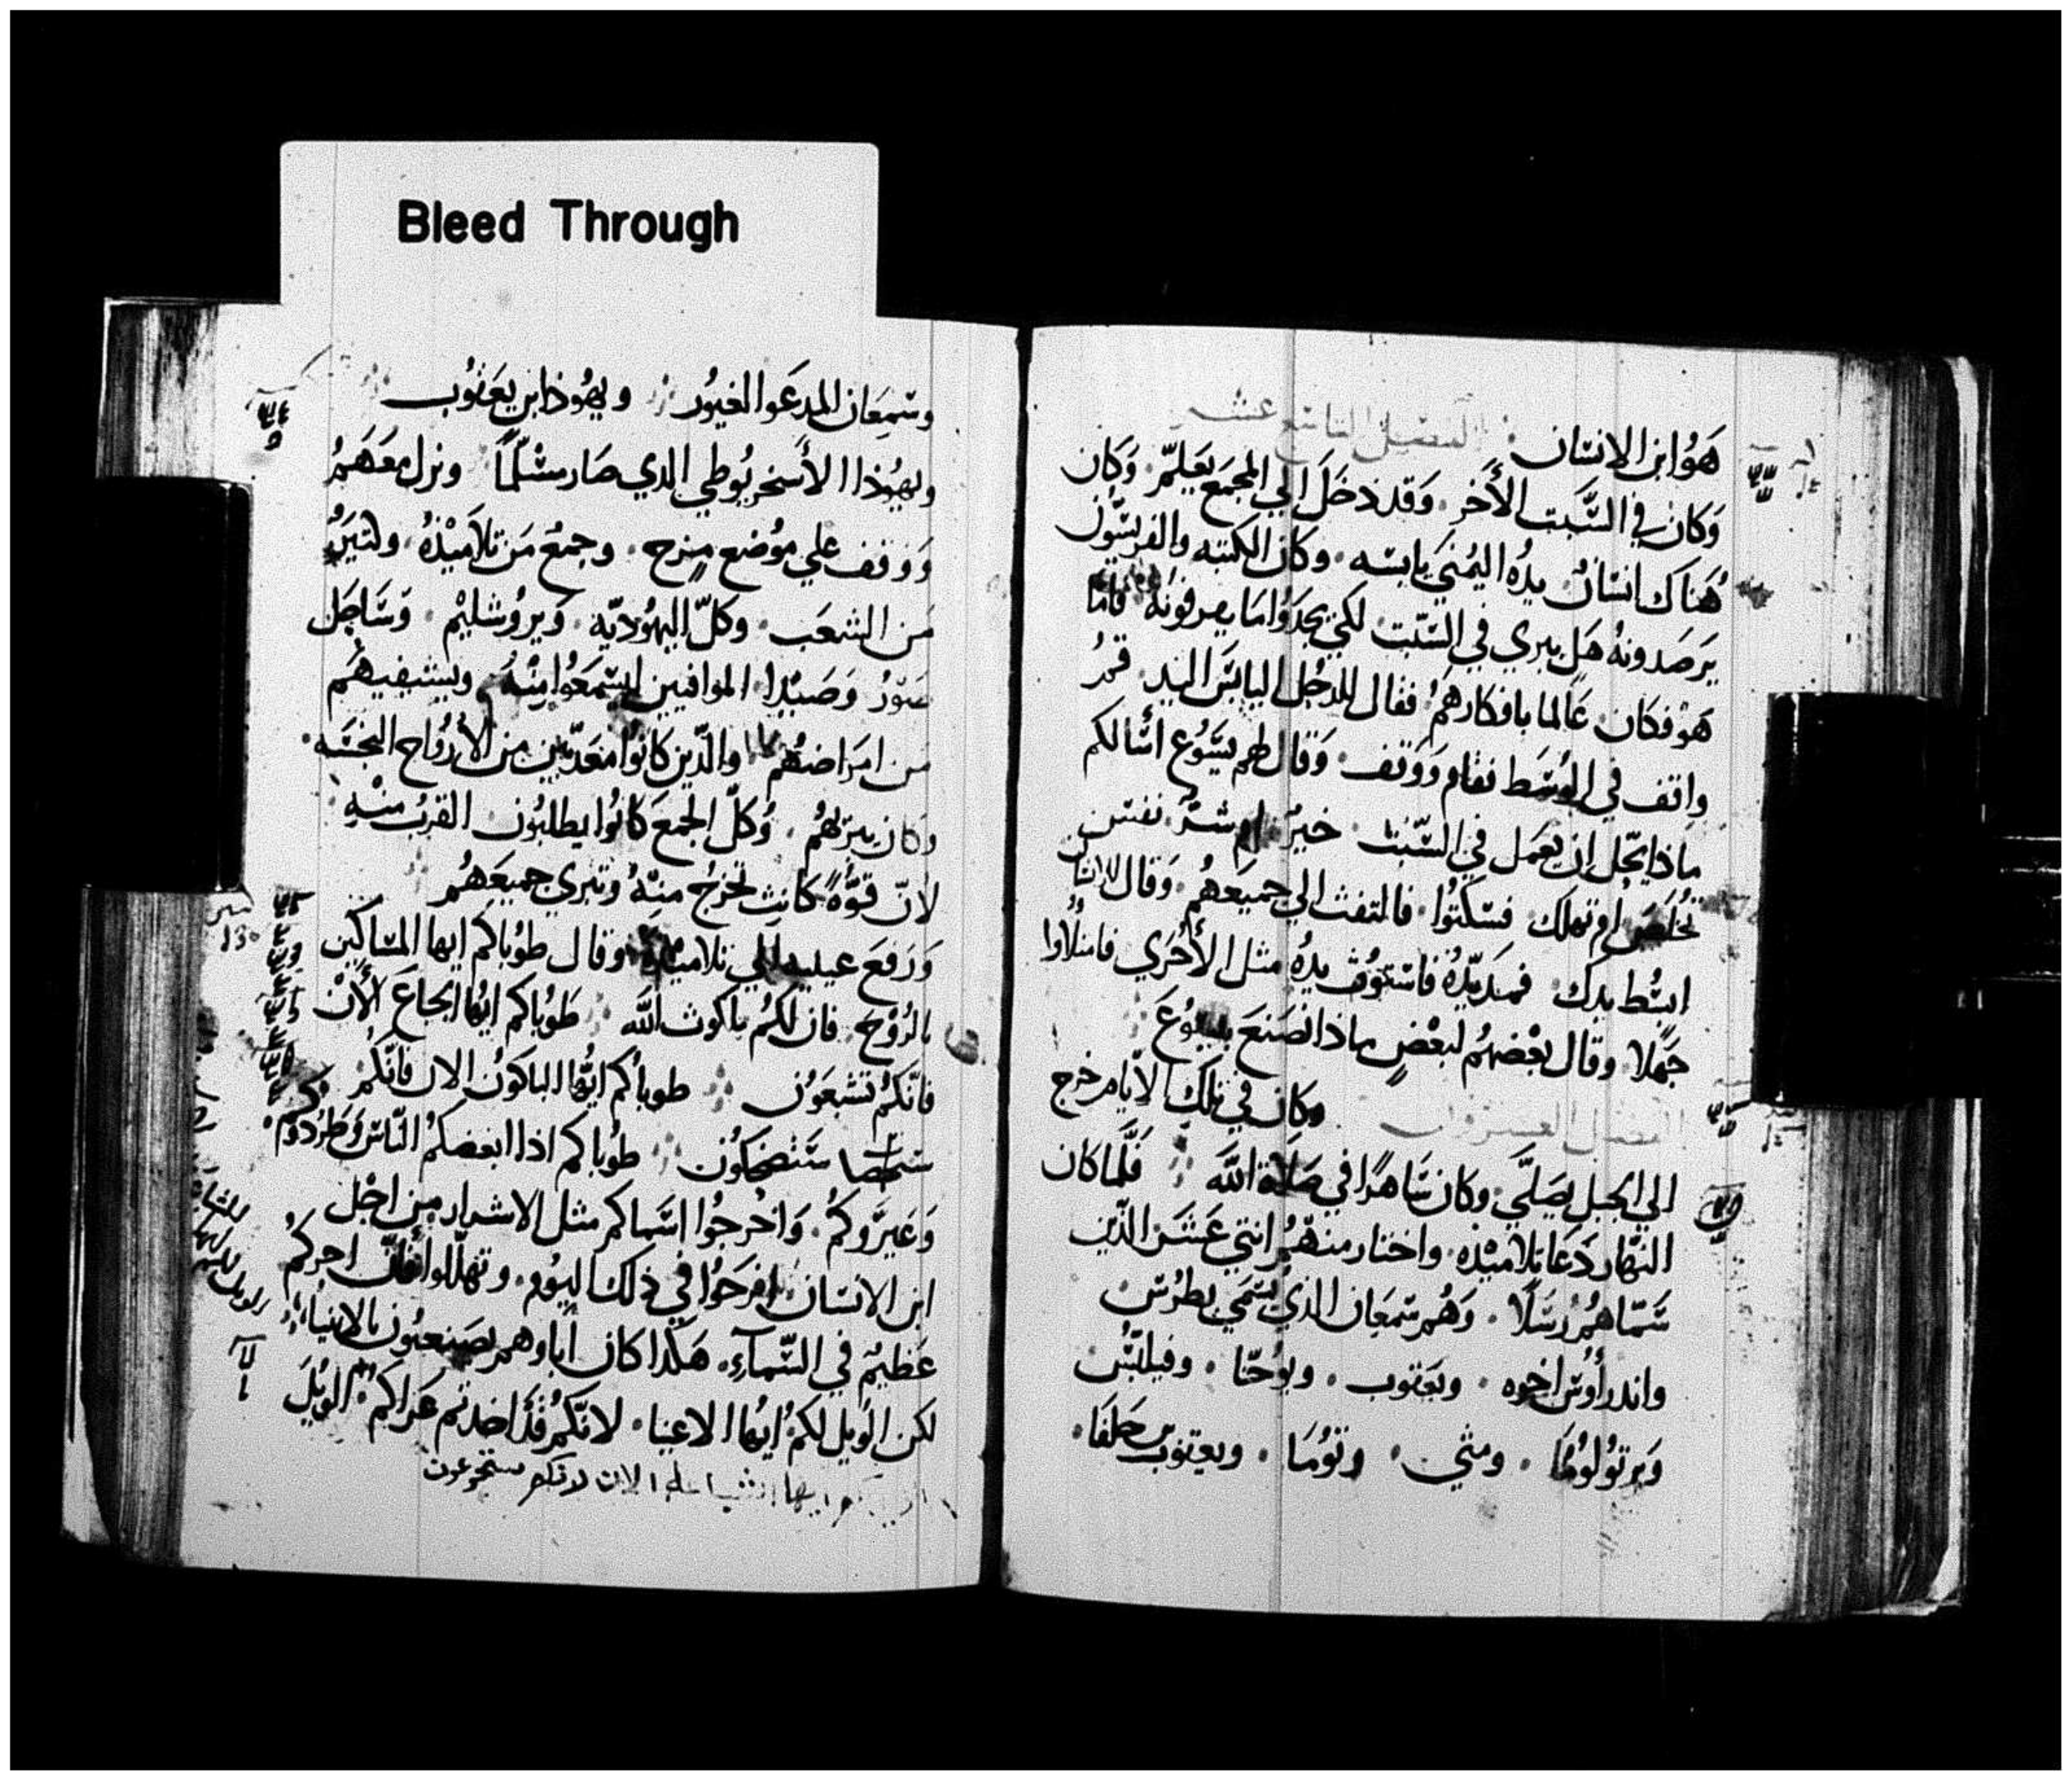 Bleed Through
هَوُ ابن الانسَان الفصل التاسع عشر
وَكان في السَّبت الأَخر. وَقد دخَلَ الي المجمَع يَعَلمّ. وَكان
هُنَاك انسَانٌ يدُه اليُمنَي يابسَه. وكان الكتبه والفريسَّيُون
يَرصَدونهُ هَل يبري في السَّبت لكي يجَدُوا مَا يصرفونهُ فامّا
هَوْ فكان عَالما بافكارهَمُ فقال للرجُل اليابسَ اليد قمرُ
واقف في الوُسَط فقام وَوَقف وَقال لهم يسَوُع اسَالكم
ماذا يحَّل ان يعمَل في السَّبت خيرٌ ام شرّ نفسَ
تُخلَصَ او تهلك فسَكتُوا فالتفت الي جميعَهُم وَقال للانسان
ابسُط يدك فمدّ يَدُهُ فاستوُت يدهُ مثل الأخَري فامتلاوا
جَهلا وقال بعْضهمُ لبعْضٍ ماذا نصَنعَ بيسوُعَ
الفصل العشرون وكان في تلك الايّام خرج
الي الجبل يصَلّي وكان سَاهرًا في صَلاة الله فَلمّا كان
النهّار دَعَا تلاميْذه واختار منهَمُ اثني عَشَر الذّين
سَمّاهمُ رُسَلًا وَهُم سمَعَان الذي يُسَمّي بطرُس
واندرأُوس اخوه ويعَقوب ويوُحَنّا وفيلبسُّ
وَبرتوُلوُمَا ومتَي وتوُمَا ويعقوب حَلفَا
وسَمِعَان المدعَوا الغيوُر ويهُوذا ابن يعَقوُب
ويهُوذا الأسَخريُوطي الذي صَار مسْلماً ونزل معَهَمُ
وَوَقف علي موُضع مرج وجمعُ مَن تلاميْذهُ وكثيرٌ
مَن الشعَب وكلّ اليهُوديّه وَيروُشليْم وَسَاحَل
صَوُرُ وَصَيْدا الموافيين ليسَمَعَوُا مِنْهُ ويشفيهمَ
من امَراضهُم والذّين كانوُا معَذبّين من الأروُاح النجسَه
وكان يبريهُم وُكلّ الجمعَ كانوُا يطلبُون القربُ منْه
لانّ قوّةً كانت تخرُج منهُ وتبري جميعَهُم
وَرَفعَ عينيه الي تلاميذه وقال طوُباكم ايها المسَاكين
بالرُوْح فان لكمُ ملكوت الله طَوُباكم ايهّا الجياعَ الأنْ
فانّكمُ تشبعَوُن طوباكم ايهُّا الباكوُن الان فانّكمُ
سَتضحكوُن طوُباكم اذا ابغضكمُ النّاس وَطرَدُوكم
وَعَيرَّوكمُ وَاخرجُوا اسَماكم مثل الاشرار من اجْل
ابن الانسَان افرحَوُا في ذلك اليوُم وتهلّلوا فانّ اجركمُ
عَظيمٌ في السَّمآء هَكذا كان اباوهمر يصَنعوُن بالانبيَاء
لكن الوُيل لكمُ ايهُا الاغنيا لانكَّمُ قدَ اخدتم عَزَاكم الويُلَ
لكم ايها الشباعا الان لانكم ستجوعون